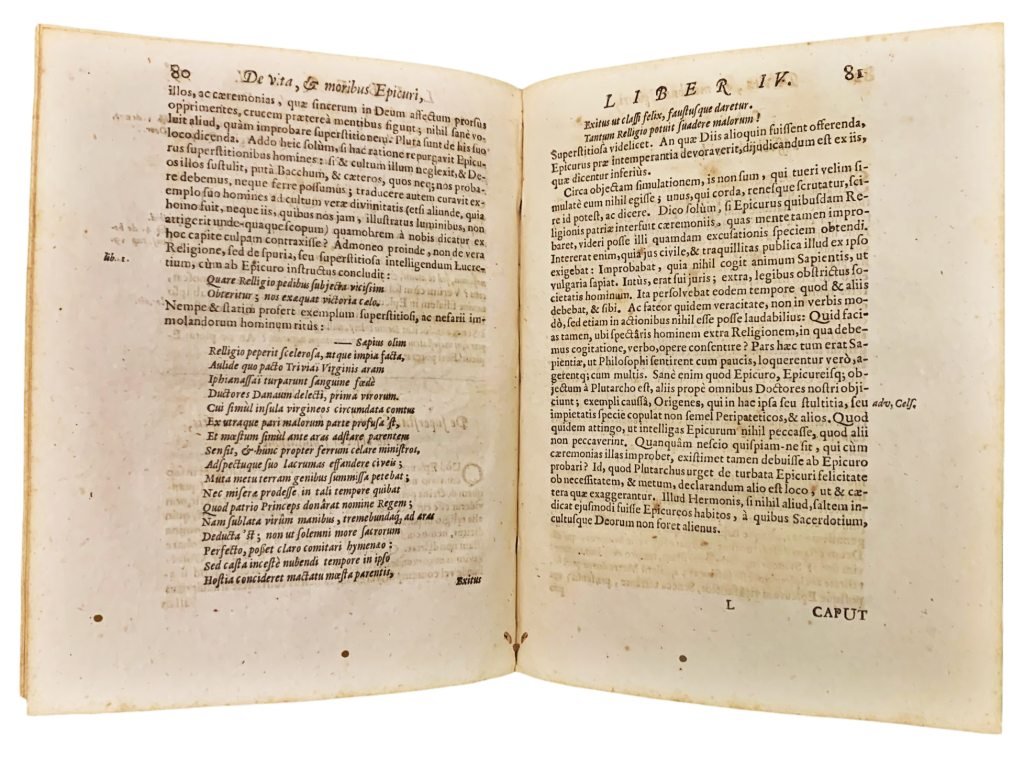 80 De vita, & moribus Epicuri,
illos, ac cæremonias, quæ sincerum in Deum affectum prorsus
opprimentes, crucem præterea mentibus figunt; nihil sanè vo-
luit aliud, quàm improbare superstitionem. Pluta sunt de his suo
loco dicenda. Addo heic solùm, si hac ratione repurgavit Epicu-
rus superstitionibus homines: si & cultum illum neglexit, & De-
os illos sustulit, putà Bacchum, & cæteros, quos neq; nos proba-
re debemus, neque ferre possumus; traducere autem curavit ex-
emplo suo homines ad cultum veræ divinitatis (etsi aliunde, quia
homo fuit, neque iis, quibus nos jam, illustratus luminibus, non
attigerit unde-quaque scopum) quamobrem à nobis dicatur ex
hoc capite culpam contraxisse? Admoneo proinde, non de vera
Religione, sed de spuria, seu superstitiosa intelligendum Lucre-
lib. 1.
tium, cùm ab Epicuro instructus concludit:
Quare Relligio pedibus subjecta vicissim
Obteritur; nos exæquat victoria cœlo.
Nempe & statim profert exemplum superstitiosi, ac nefarii im-
molandorum hominum ritus:
—— Sæpius olim
Relligio peperit scelerosa, atque impia facta,
Aulide quo pacto Triviai Virginis aram
Iphianassai turparunt sanguine fœdè
Ductores Danaum delecti, prima virorum.
Cui simul insula virgineos circumdata comtus
Ex utraque pari malorum parte profusa'st,
Et mœstum simul ante aras adstare parentem
Sensit, & hunc propter ferrum celare ministros,
Adspectuque suo lacrumas effundere civeis;
Muta metu terram genibus summissa petebat;
Nec miseræ prodesse in tali tempore quibat
Quod patrio Princeps donârat nomine Regem;
Nam sublata virûm manibus, tremebundaq; ad aras
Deducta'st; non ut solemni more sacrorum
Perfecto, posset claro comitari hymenæo:
Sed casta incestè nubendi tempore in ipso
Hostia concideret mactatu mœsta parentis,
Exitus
LIBER IV. 81
Exitus ut classi felix, faustusque daretur.
Tantum Relligio potuit suadere malorum?
Superstitiosa videlicet. An quæ Diis alioquin fuissent offerenda,
Epicurus præ intemperantia devoraverit, dijudicandum est ex iis,
quæ dicentur inferiùs.
Circa objectam simulationem, is non sum, qui tueri velim si-
mulatè eum nihil egisse; unus, qui corda, renesque scrutatur, sci-
re id potest, ac dicere. Dico solùm, si Epicurus quibusdam Re-
ligionis patriæ interfuit cæremoniis, quas mente tamen impro-
baret, videri posse illi quamdam excusationis speciem obtendi.
Intererat enim, quia jus civile, & traquillitas publica illud ex ipso
exigebat: Improbabat, quia nihil cogit animum Sapientis, ut
vulgaria sapiat. Intùs, erat sui juris; extra, legibus obstrictus so-
cietatis hominum. Ita persolvebat eodem tempore quod & aliis
debebat, & sibi. Ac fateor quidem veracitate, non in verbis mo-
dò, sed etiam in actionibus nihil esse posse laudabilius: Quid faci-
as tamen, ubi spectâris hominem extra Religionem, in qua debe-
mus cogitatione, verbo, opere consentire? Pars hæc tum erat Sa-
pientiæ, ut Philosophi sentirent cum paucis, loquerentur verò, a-
gerentq; cum multis. Sanè enim quod Epicuro, Epicureisq; ob-
jectum à Plutarcho est, aliis propè omnibus Doctores nostri obji-
ciunt; exempli caussâ, Origenes, qui in hac ipsa seu stultitia, seu
adv. Cels.
impietatis specie copulat non semel Peripateticos, & alios. Quod
quidem attingo, ut intelligas Epicurum nihil peccasse, quod alii
non peccaverint. Quanquàm nescio quispiam-ne sit, qui cùm
cæremonias illas improbet, existimet tamen debuisse ab Epicuro
probari? Id, quod Plutarchus urget de turbata Epicuri felicitate
ob necessitatem, & metum, declarandum alio est loco; ut & cæ-
tera quæ exaggerantur. Illud Hermonis, si nihil aliud, saltem in-
dicat ejusmodi fuisse Epicureos habitos, à quibus Sacerdotium,
cultusque Deorum non foret alienus.
L CAPUT